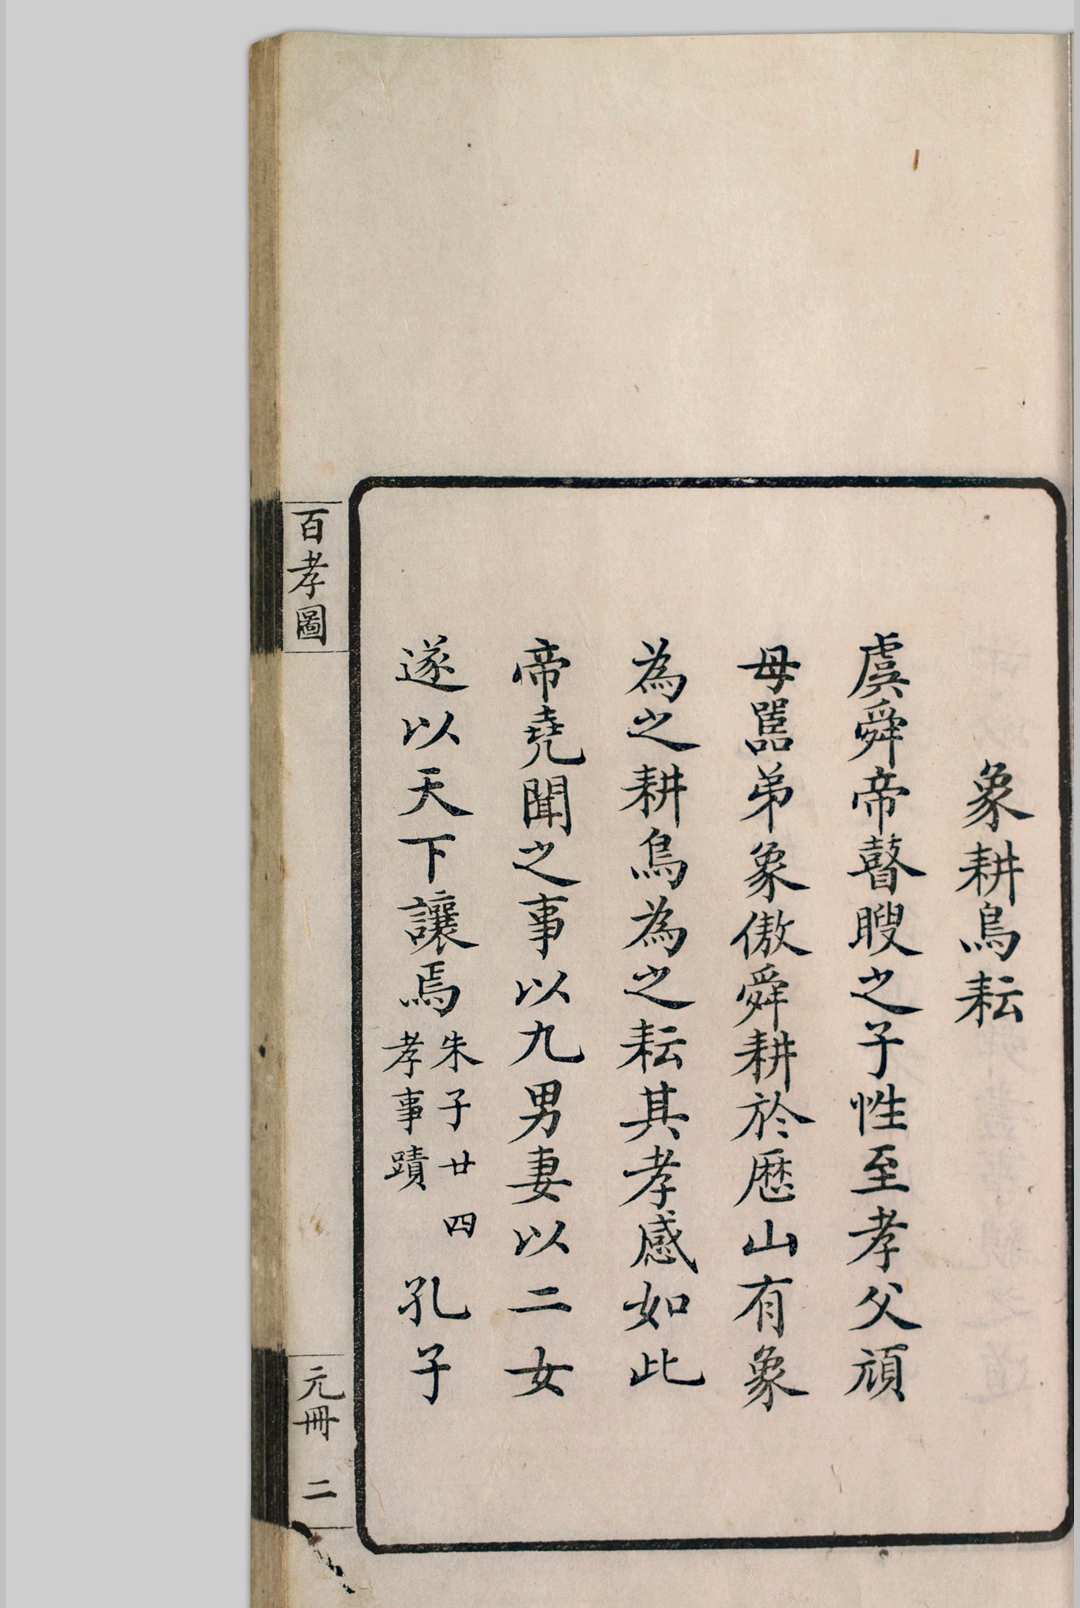 象耕鳥耘
虞舜帝瞽瞍之子性至孝父頑
母嚚弟象傲舜耕於歷山有象
為之耕鳥為之耘其孝感如此
帝堯聞之事以九男妻以二女
遂以天下讓焉朱子廿四孝事蹟孔子
百孝圖
元冊 二